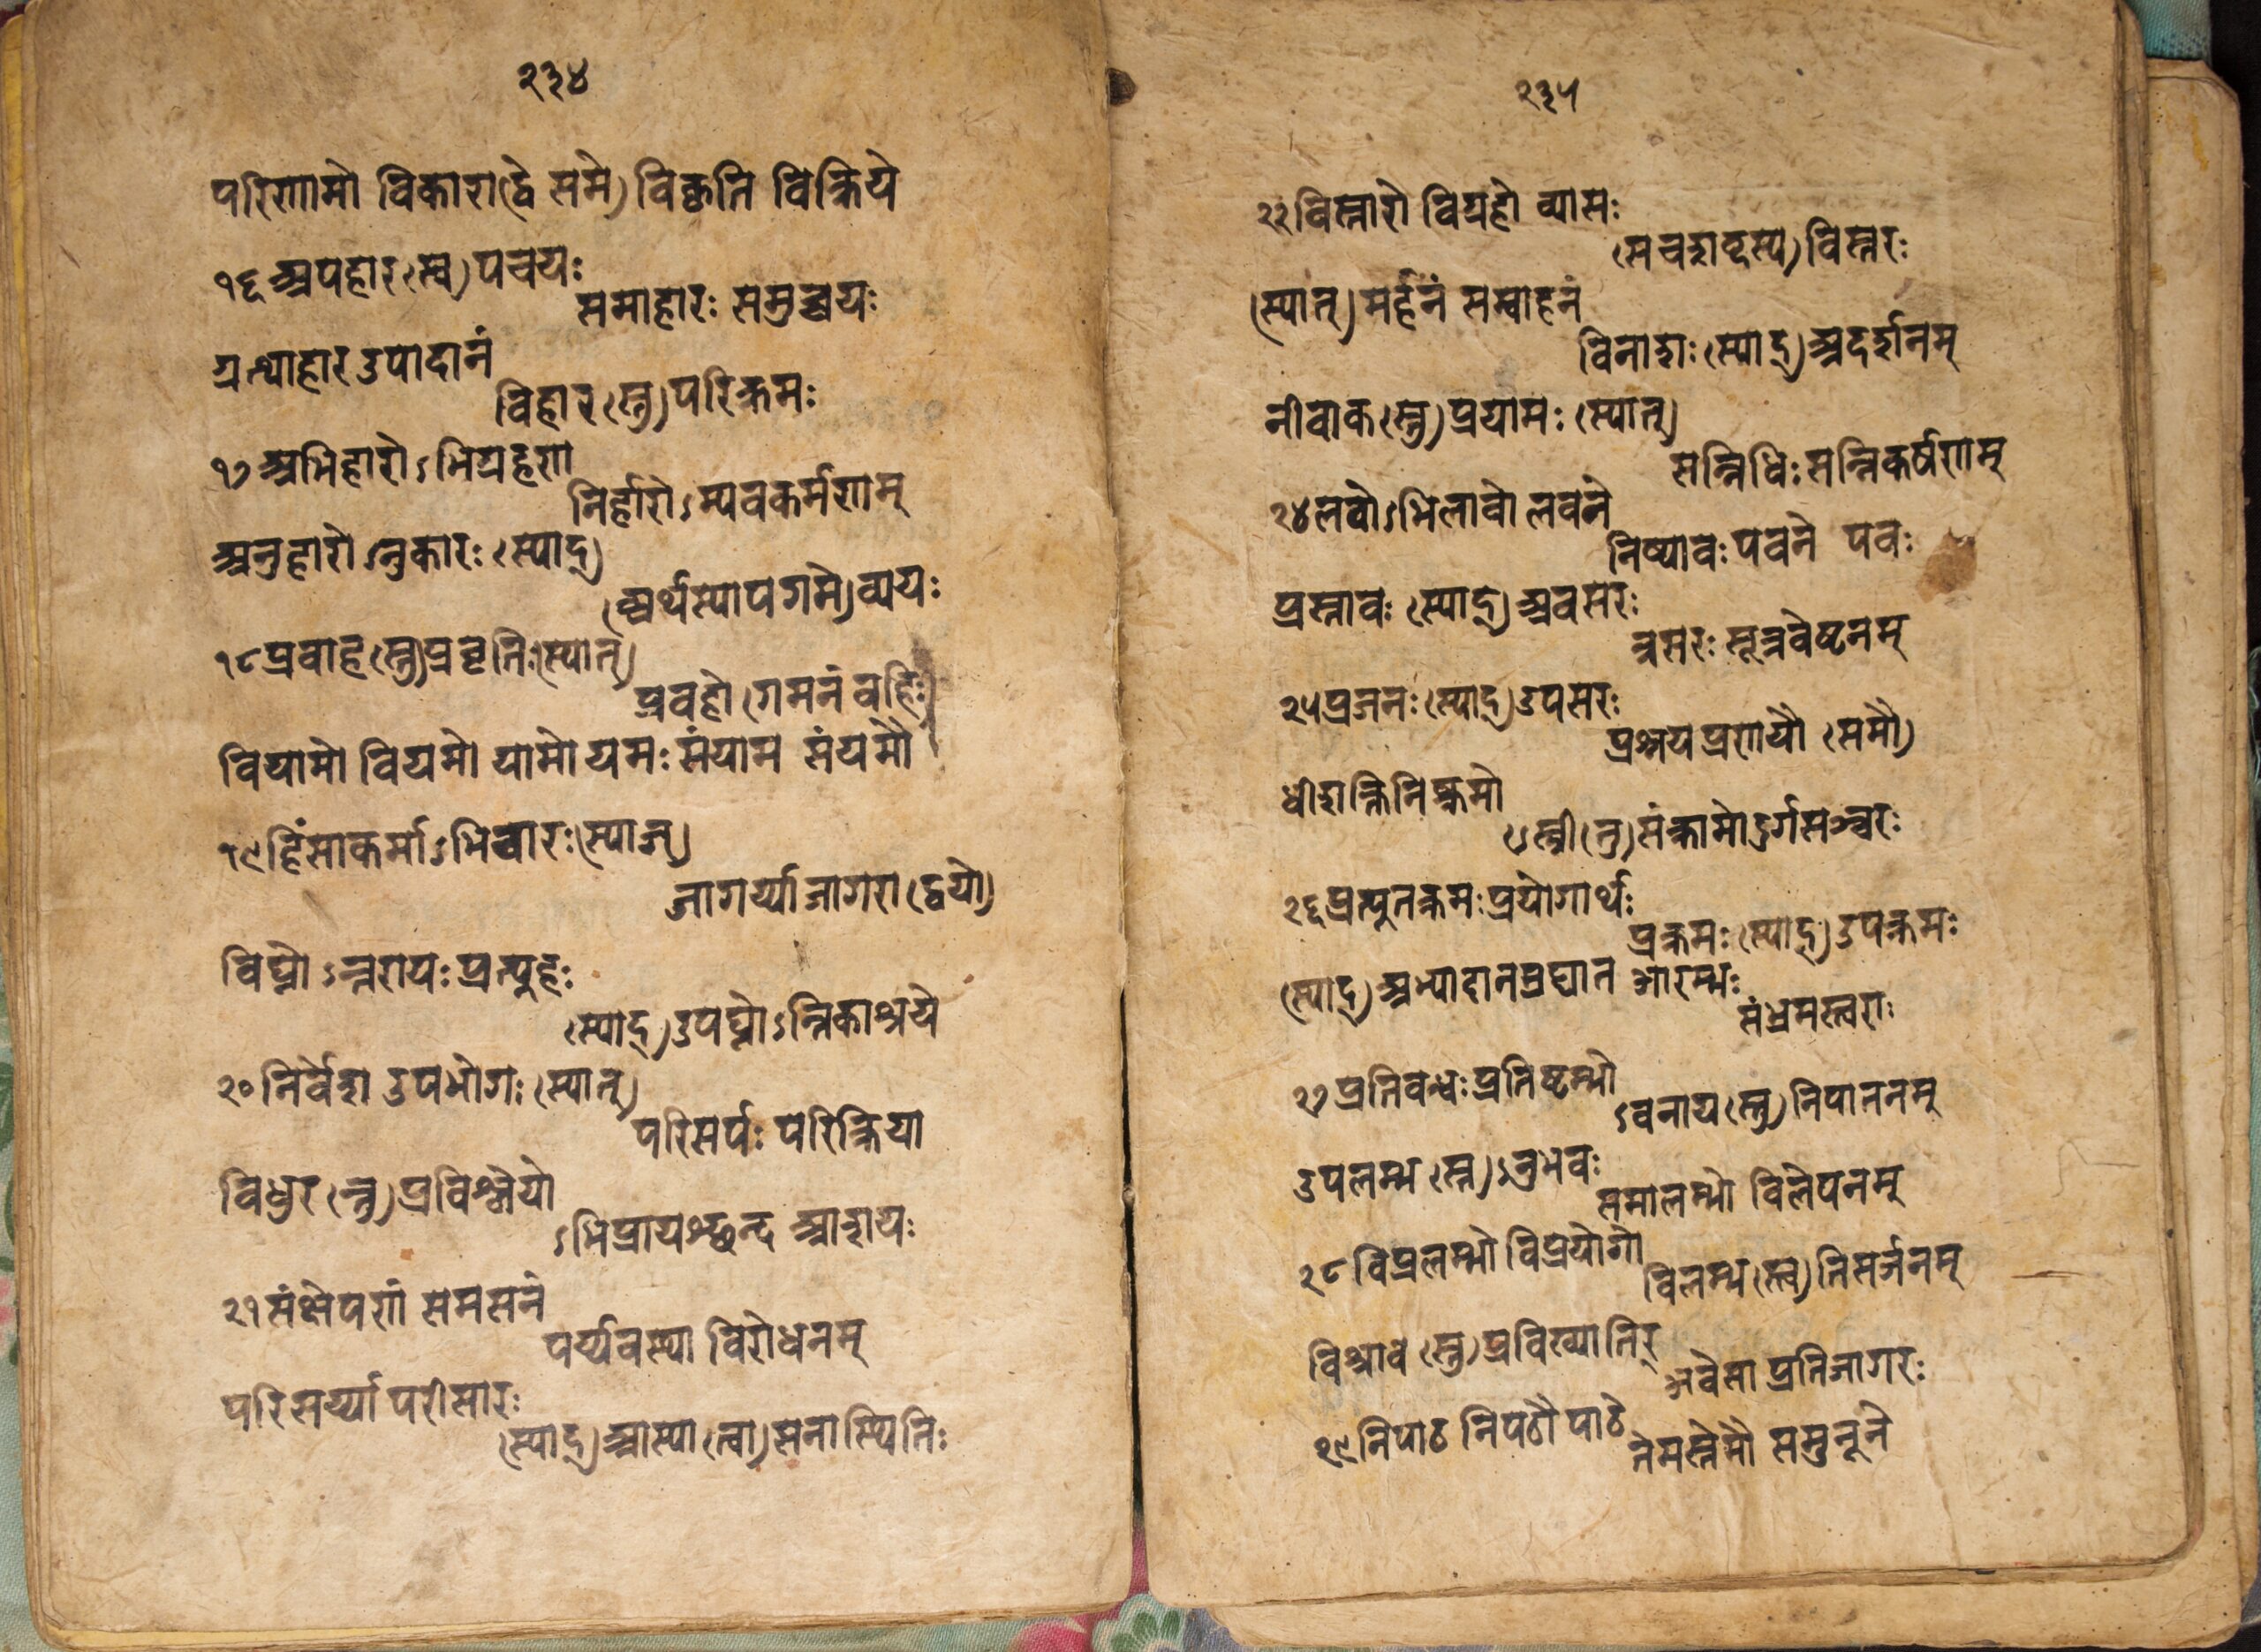 २३४
परिणामो विकारा(द्वे समे)विकृति विक्रिये
१६ अपहार(स्त्व)पचयः
समाहारः समुच्चयः
प्रत्याहार उपादानं
विहार(स्तु)परिक्रमः
१७ अभिहारोऽभिग्रहणा
निर्हारोऽभ्यवकर्मणाम्
अनुहारोऽनुकारः (स्याद्)
(अर्थस्यापगमे)व्ययः
१८ प्रवाह(स्तु)प्रवृतिः(स्यात्)
प्रवहो(गमनं वहिः)
वियामो वियमो यामो यमः संयाम संयमौ
१९ हिंसाकर्माऽभिचारः(स्याज्)
जागर्य्या जागरा(द्वयो)
विघ्नोऽन्तरायः प्रत्यूहः
(स्याद्)उपघ्नोऽन्तिकाश्रये
२० निर्वेश उपभोगः (स्यात्)
परिसर्पः परिक्रिया
विधुर(न्तु)प्रविश्लेयो
ऽभिप्रायश्छन्द आशयः
२१ संक्षेपणं समसनं
पर्य्यवस्था विरोधनम्
परिसर्य्या परीसारः
(स्याद्)आस्या(त्वा)सनास्थितिः
२३५
२२ विस्तारो विग्रहो व्यासः
(सचशब्दस्य)विस्तरः
(स्यान्)मर्द्दनं सम्वाहनं
विनाशः(स्याद्)अदर्शनम्
नीवाक(स्तु)प्रयामः (स्यात्)
सन्निधिः सन्निकर्षणम्
२४ लवोऽभिलावो लवने
निष्पावः पवने पवः
प्रस्तावः (स्याद्)अवसरः
त्रसरः सूत्रवेष्टनम्
२५ प्रजनः(स्याद्)उपसरः
प्रश्रयप्रणयौ (समौ)
धीशक्तिनिष्क्रमो
(ऽस्त्री तु)संक्रामो दुर्गसञ्चरः
२६ प्रत्युतक्रमः प्रयोगार्थः
प्रक्रमः(स्याद्)उपक्रमः
(स्याद्)अभ्यादानप्रघात आरम्भः
संभ्रमस्त्वराः
२७ प्रतिवन्धः प्रतिष्टम्भो
ऽवनाय(स्तु)निपातनम्
उपलम्भ(स्त्व)ऽनुभवः
समालम्भो विलेपनम्
२८ विप्रलम्भो विप्रयोगो
विलम्भ(स्त्व)तिसर्जनम्
विश्राव(स्तु)प्रविख्यातिर्
अवेक्षा प्रतिजागरः
२९ निपाठ निपठौ पाठे
तेमस्तेमौ समुन्दने